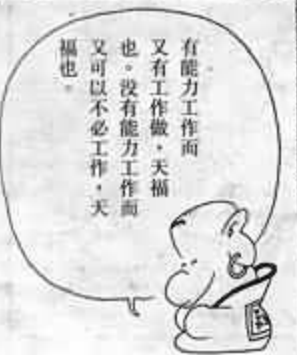 有能力工作而
又有工作做，天福
也。沒有能力工作而
又可以不必工作，天
福也。